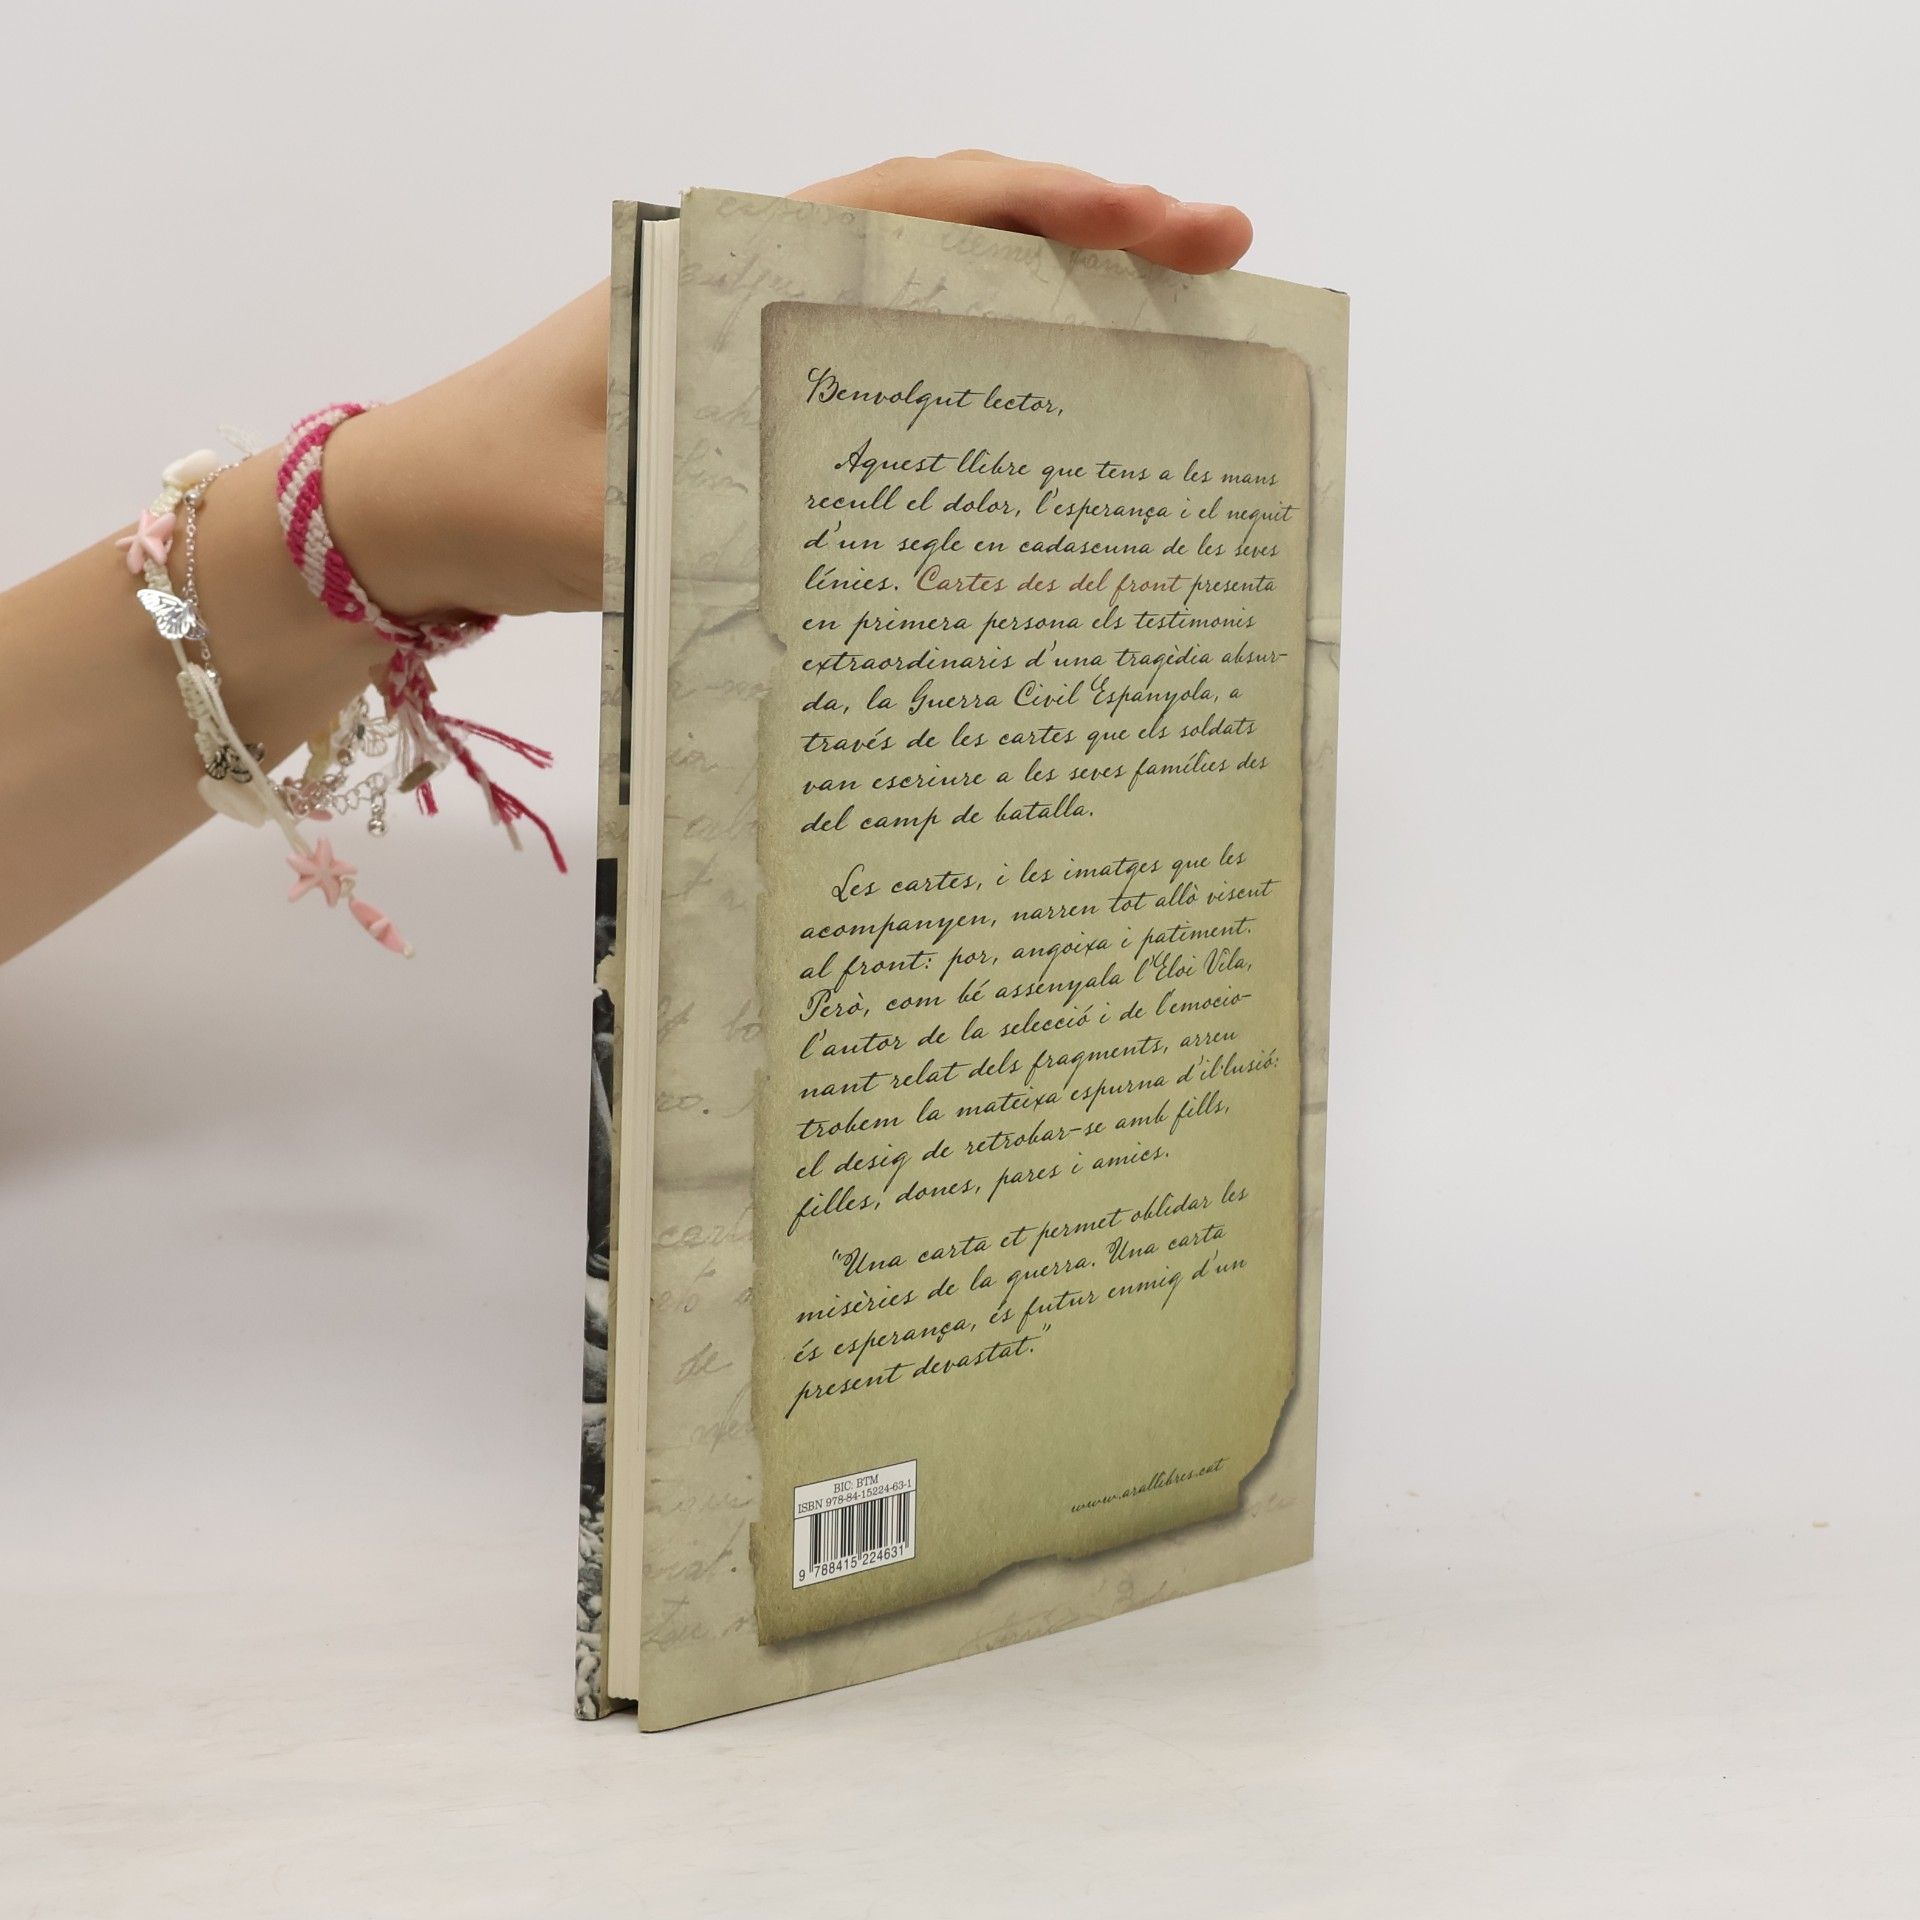 Benvolgut lector,
Aquest llibre que tens a les mans
recull el dolor, l'esperança i el neguit
d'un segle en cadascuna de les seves
línies. Cartes des del front presenta
en primera persona els testimonis
extraordinaris d'una tragèdia absur-
da, la Guerra Civil Espanyola, a
través de les cartes que els soldats
van escriure a les seves famílies des
del camp de batalla.
Les cartes, i les imatges que les
acompanyen, narren tot allò viscut
al front: por, angoixa i patiment.
Però, com bé assenyala l'Eloi Vila,
l'autor de la selecció i de l'emocio-
nant relat dels fragments, arreu
trobem la mateixa espurna d'il·lusió:
el desig de retrobar-se amb fills,
filles, dones, pares i amics.
"Una carta et permet oblidar les
misèries de la guerra. Una carta
és esperança, és futur enmig d'un
present devastat."
www.arallibres.cat
BIC: BTM
ISBN 978-84-15224-63-1
9 788415 224631